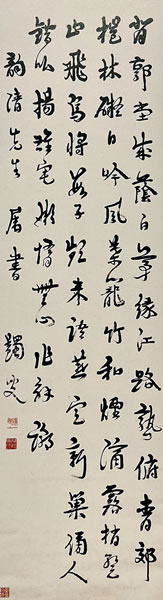 背郭堂成蔭白茅緣江路熟俯青郊
榿林礙日吟風葉籠竹和煙滴露梢暫
止飛烏將數子頻來語燕定新巢傍人
錯比揚雄宅懶惰無心作解嘲
韵清先生屬書 蠲叟